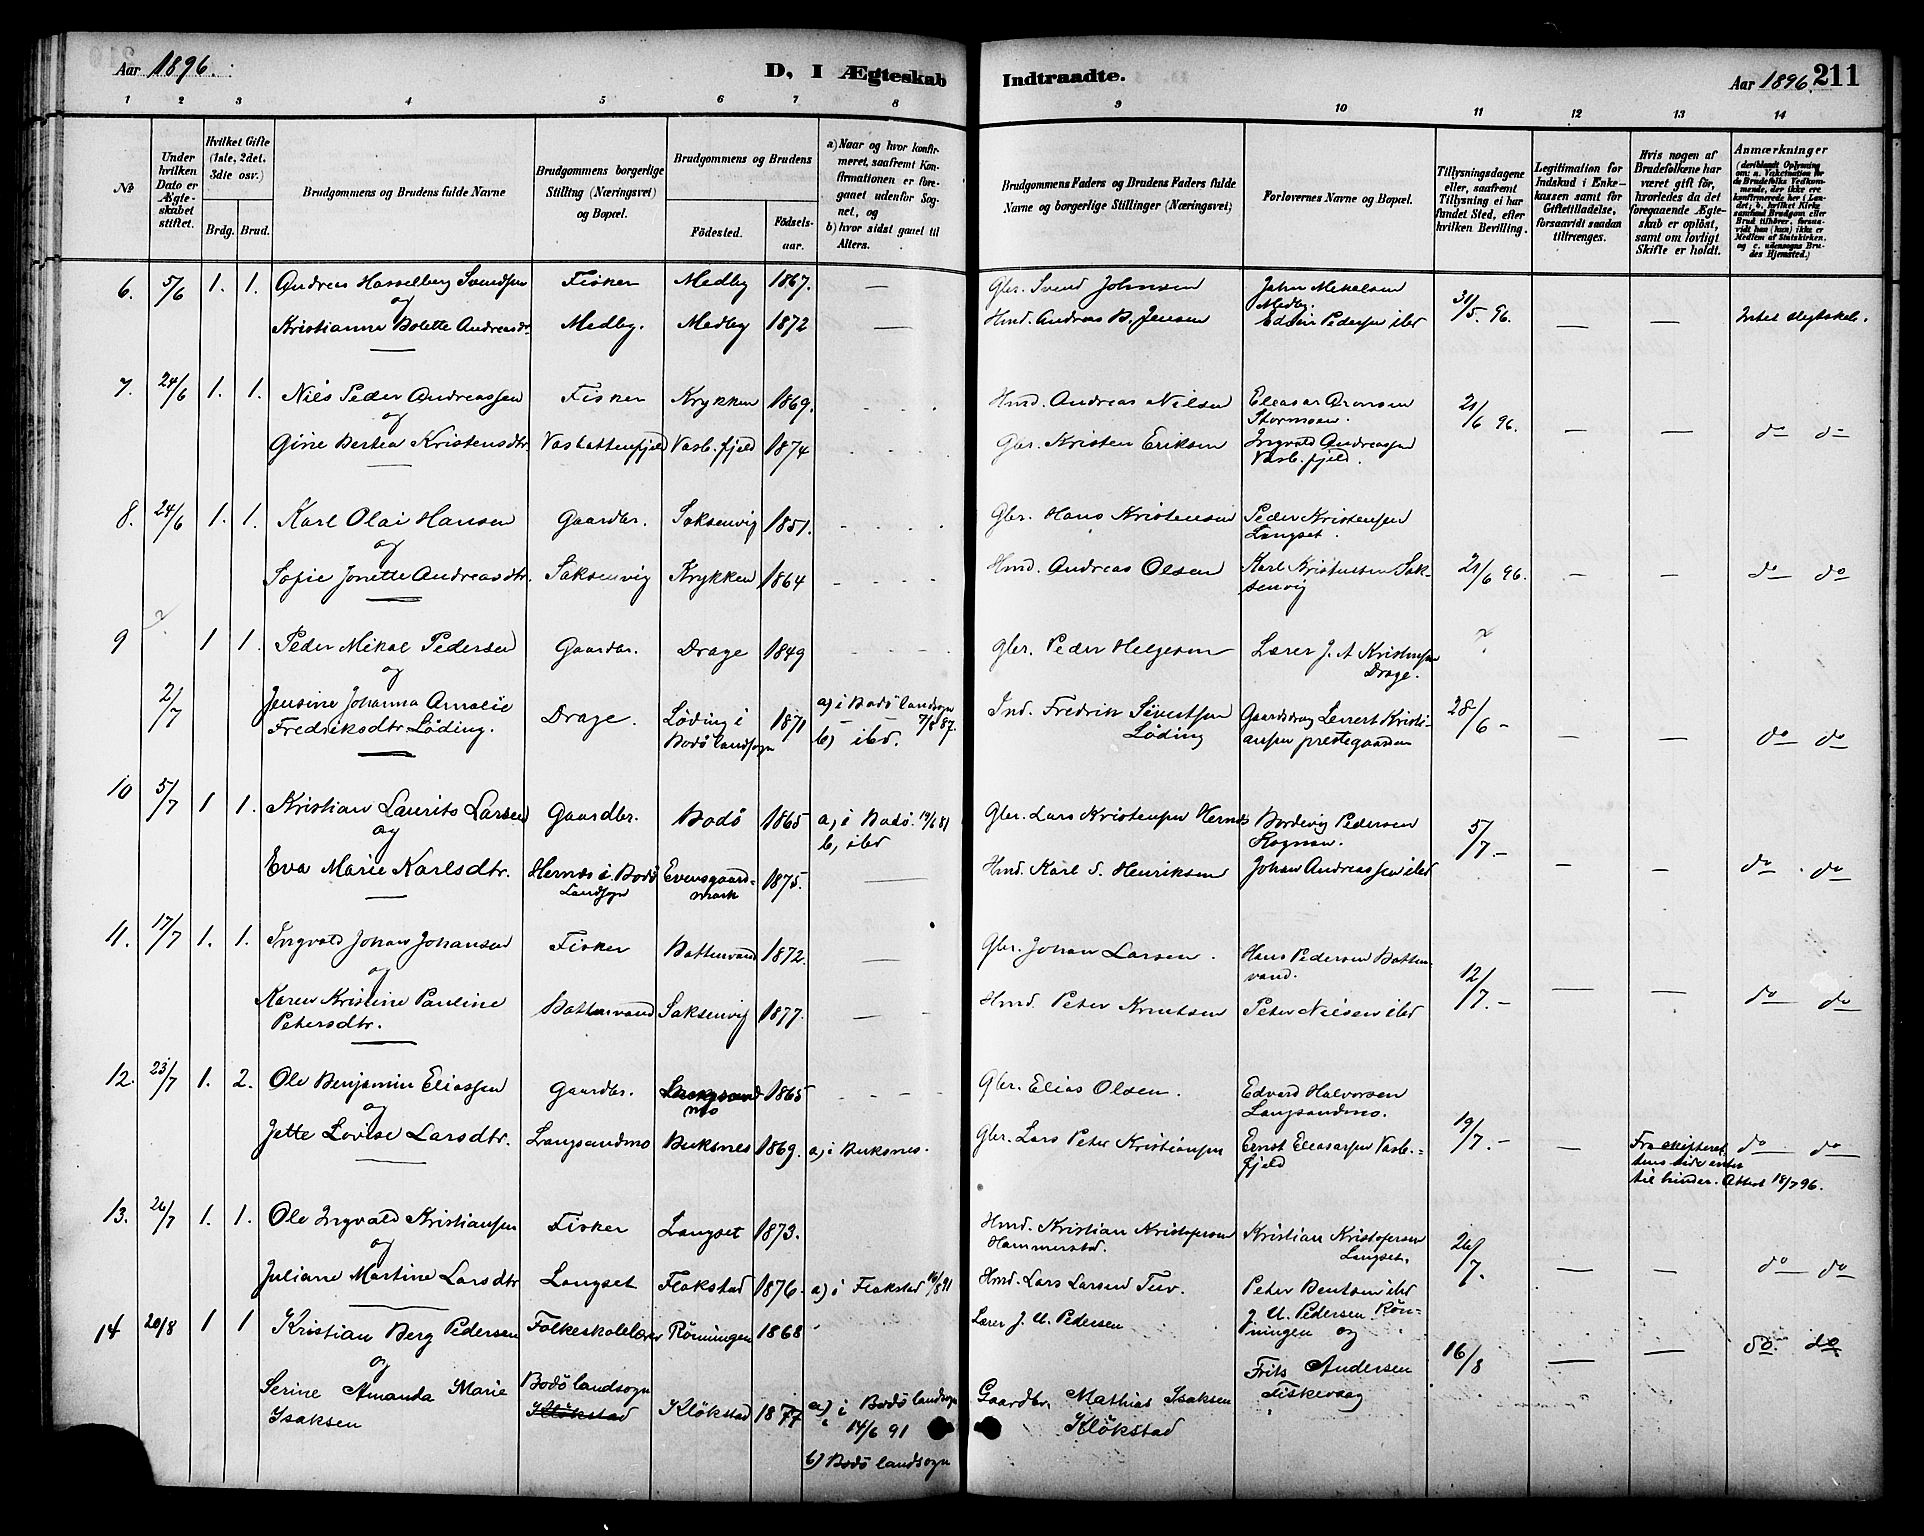 Aar 1896.
D, I Ægteskab Indtraadte.
Aar 1896. 211
1 2 3 4 5 6 7 8 9 10 11 12 13 14
№
Under hvilken Dato er Ægteskabet stiftet.
Hvilket Gifte (1ste, 2det, 3dte osv.)
Brdg. Brud.
Brudgommens og Brudens fulde Navne
Brudgommens borgerlige Stilling (Næringsvei) og Bopæl.
Brudgommens og Brudens
Fødested. Fødselsaar.
a) Naar og hvor konfirmeret, saafremt Konfirmationen er foregaaet udenfor Sognet, og
b) hvor sidst gaaet til Alters.
Brudgommens Faders og Brudens Faders fulde Navne og borgerlige Stillinger (Næringsvei)
Forlovernes Navne og Bopæl.
Tillysningsdagene eller, saafremt Tillysning ei har fundet Sted, efter hvilken Bevilling.
Legitimation for Indskud i Enkekassen samt for Giftetilladelse, forsaavidt saadan tiltrænges.
Hvis nogen af Brudefolkene har været gift før, hvorledes da det foregaaende Ægteskab er opløst, samt om lovligt Skifte er holdt.
Anmærkninger
(deriblandt Oplysning om: a. Vaksination for de Brudefolks Vedkommende, der ikke ere konfirmerede her i Landet; b. hvilket Kirkesamfund Brudgom eller Brud tilhører, forsaavidt han (hun) ikke er Medlem af Statskirken, og c. udensogns Brudes Hjemsted.)
6. 5/6 1. 1. Andreas Hasselberg Svendsen Fisker Medby 1867. — Gbr. Svend Johnsen John Mikalsen Medby. 31/5. 96.
og
Kristianne Bolette Andreasdr. Medby. Medby 1872 — Hmd. Andreas B. Jensen Edvin Pedersen ibd — — Intet slegtskab.
7. 24/6 1. 1. Nils Peder Andreassen Fisker Krykken 1869. Hmd. Andreas Nilsen Eleasar Aronsen Stormoen. 21/6 96.
og
Gine Bertea Kristensdtr. Vasbottenfjeld Vasb.fjeld 1874 Gbr. Kristen Eriksen Ingvald Andreassen Vasb.fjeld. — — do do
8. 24/6 1. 1. Karl Olai Hansen Gaardbr. Saksenvig 1851. Gbr. Hans Kristensen Peder Kristensen Langset.
og
Sofie Jonette Andreasdtr. Saksenvig Krykken 1864 Hmd. Andreas Olsen Karl Kristensen Saksenvig 21/6 96. — — do do
9 ? 1 1. Peder Mikal Pedersen Gaardbr. Drage 1849 Gbr. Peder Helgesen Lærer J. A Kristensen Drage. ?
og
2/7 Jensine Johanna Amalie Fredriksdtr. Löding. Drage. Löding i Bodö landsogn 1871 a) i Bodö landsogn 7/8 87. b) — ibd. Ind. Fredrik Sivertsen Löding Gaardsdrag Lenert Kristiansen prestegaarden 28/6 — — — do do
10 5/7 1 1. Kristian Laurits Larsen Gaardbr. Bodö 1865 a, i Bodö. 19/6 81 b, ibd Gbr. Lars Kristensen Hernes Bordevig Pedersen Rognan. 5/7.—
og
Eva Marie Karlsdtr. Hernes i Bodö Landsogn Evensgaardmark 1875. — Hmd. Karl S. Henriksen Johan Andreassen ibd — — do do
11. 17/7 1. 1. Ingvald Johan Johansen Fisker Bottenvand 1872. — Gbr. Johan Larsen. Hans Pedersen Bottenvand. 12/7.—
og
Karen Kristine Pauline Petersdtr. Bottenvand Saksenvig 1877. — Hmd. Peter Knutsen Peter Nilsen ibd — — do do
12. 23/7 1. 2. Ole Benjamin Eliassen Gaardbr. Langsandmo 1865 Gbr. Elias Olsen. Edvard Halvorsen Langsandmo.
og
Jette Lovise Larsdtr. Langsandmo Buksnes 1869. a, i Buksnes. Gbr. Lars Peter Kristiansen Ernst Eleasarsen Vasb.fjeld 19/7.— — Fra skifterettens side intet til hinder. Attest 18/7 96. do do
13. 26/7 1. 1. Ole Ingvald Kristiansen Fisker Langset 1873. Hmd. Kristian Kristofersen Hammerstad. Kristian Kristofersen Langset. 26/7.
og
Juliane Martine Larsdtr Langset Flakstad 1876. a) i Flakstad 16/8 91 Hmd. Lars Larsen Tuv. Peter Bentsen ibd — — do do
14 20/8 1 1 Kristian Berg Pedersen Folkeskolelærer Röningen 1868 Lærer J. U. Pedersen J. U. Pedersen Röningen og
og
Serine Amanda Marie Isaksen Bodö landsogn Klökstad Klökstad 1877 a) i Bodö landsogn 14/6 91 b) Bodö landsogn Gaardbr. Mathias Isaksen Klökstad Frits Andersen Fiskevaag 16/8 — — do. do